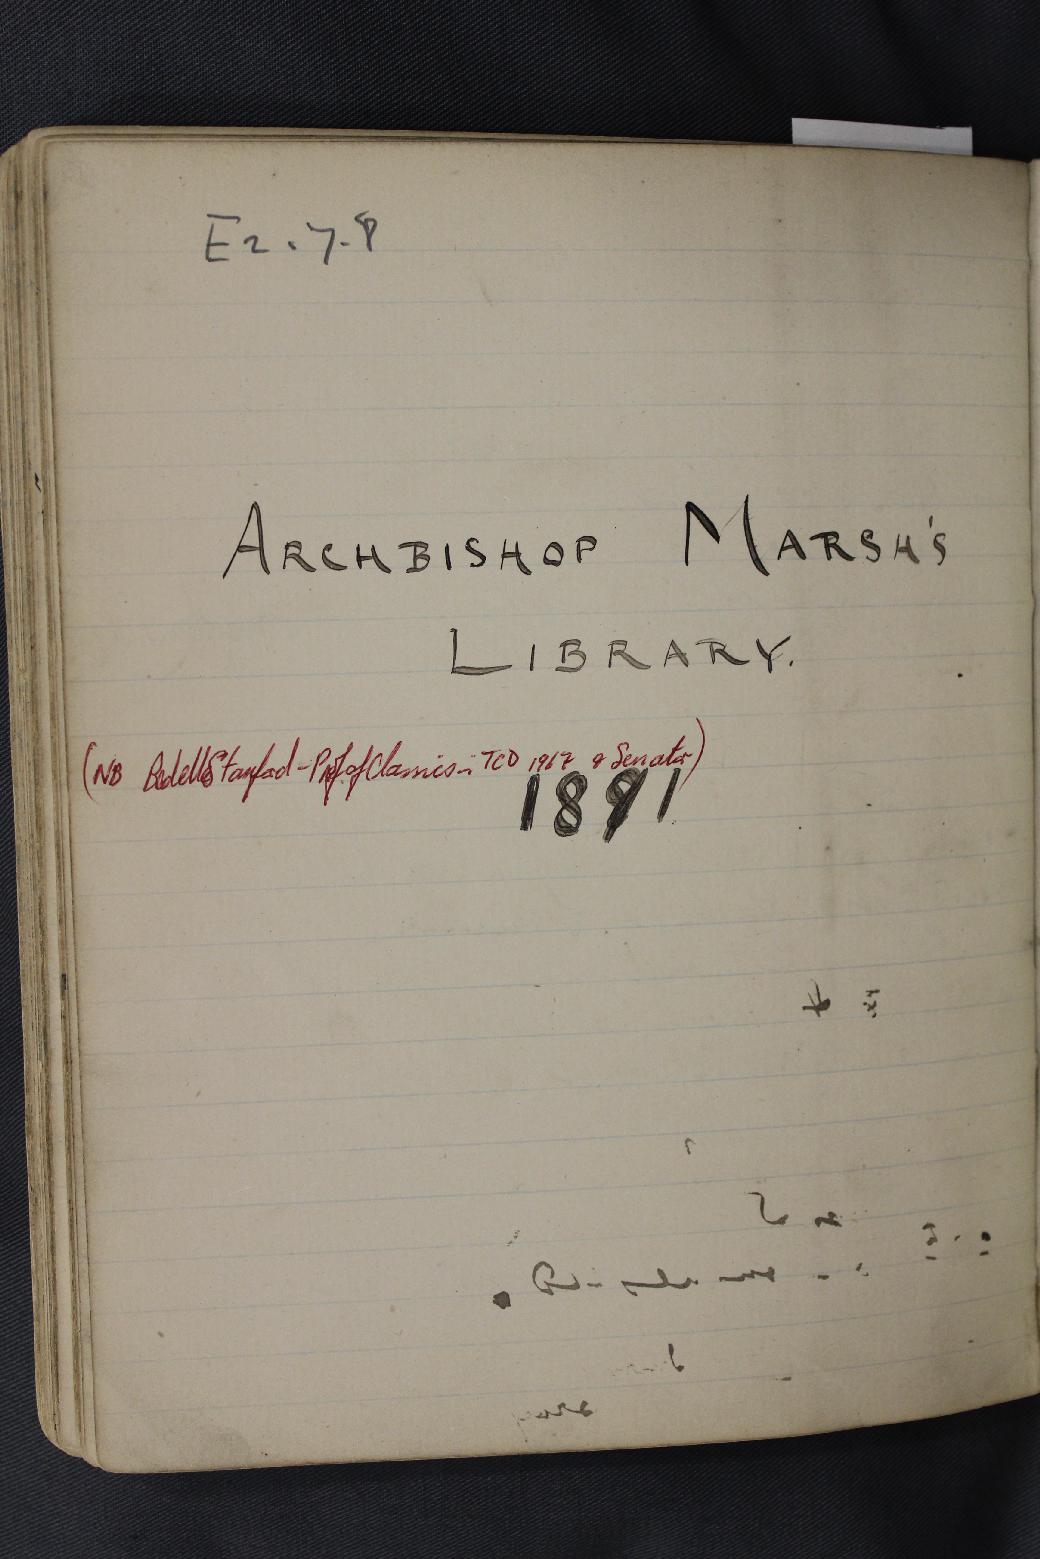 E2.7.8
ARCHBISHOP MARSH'S
LIBRARY.
(NB Bedell Stanford - Prof. of Classics - TCD 1967 & Senator)
1891